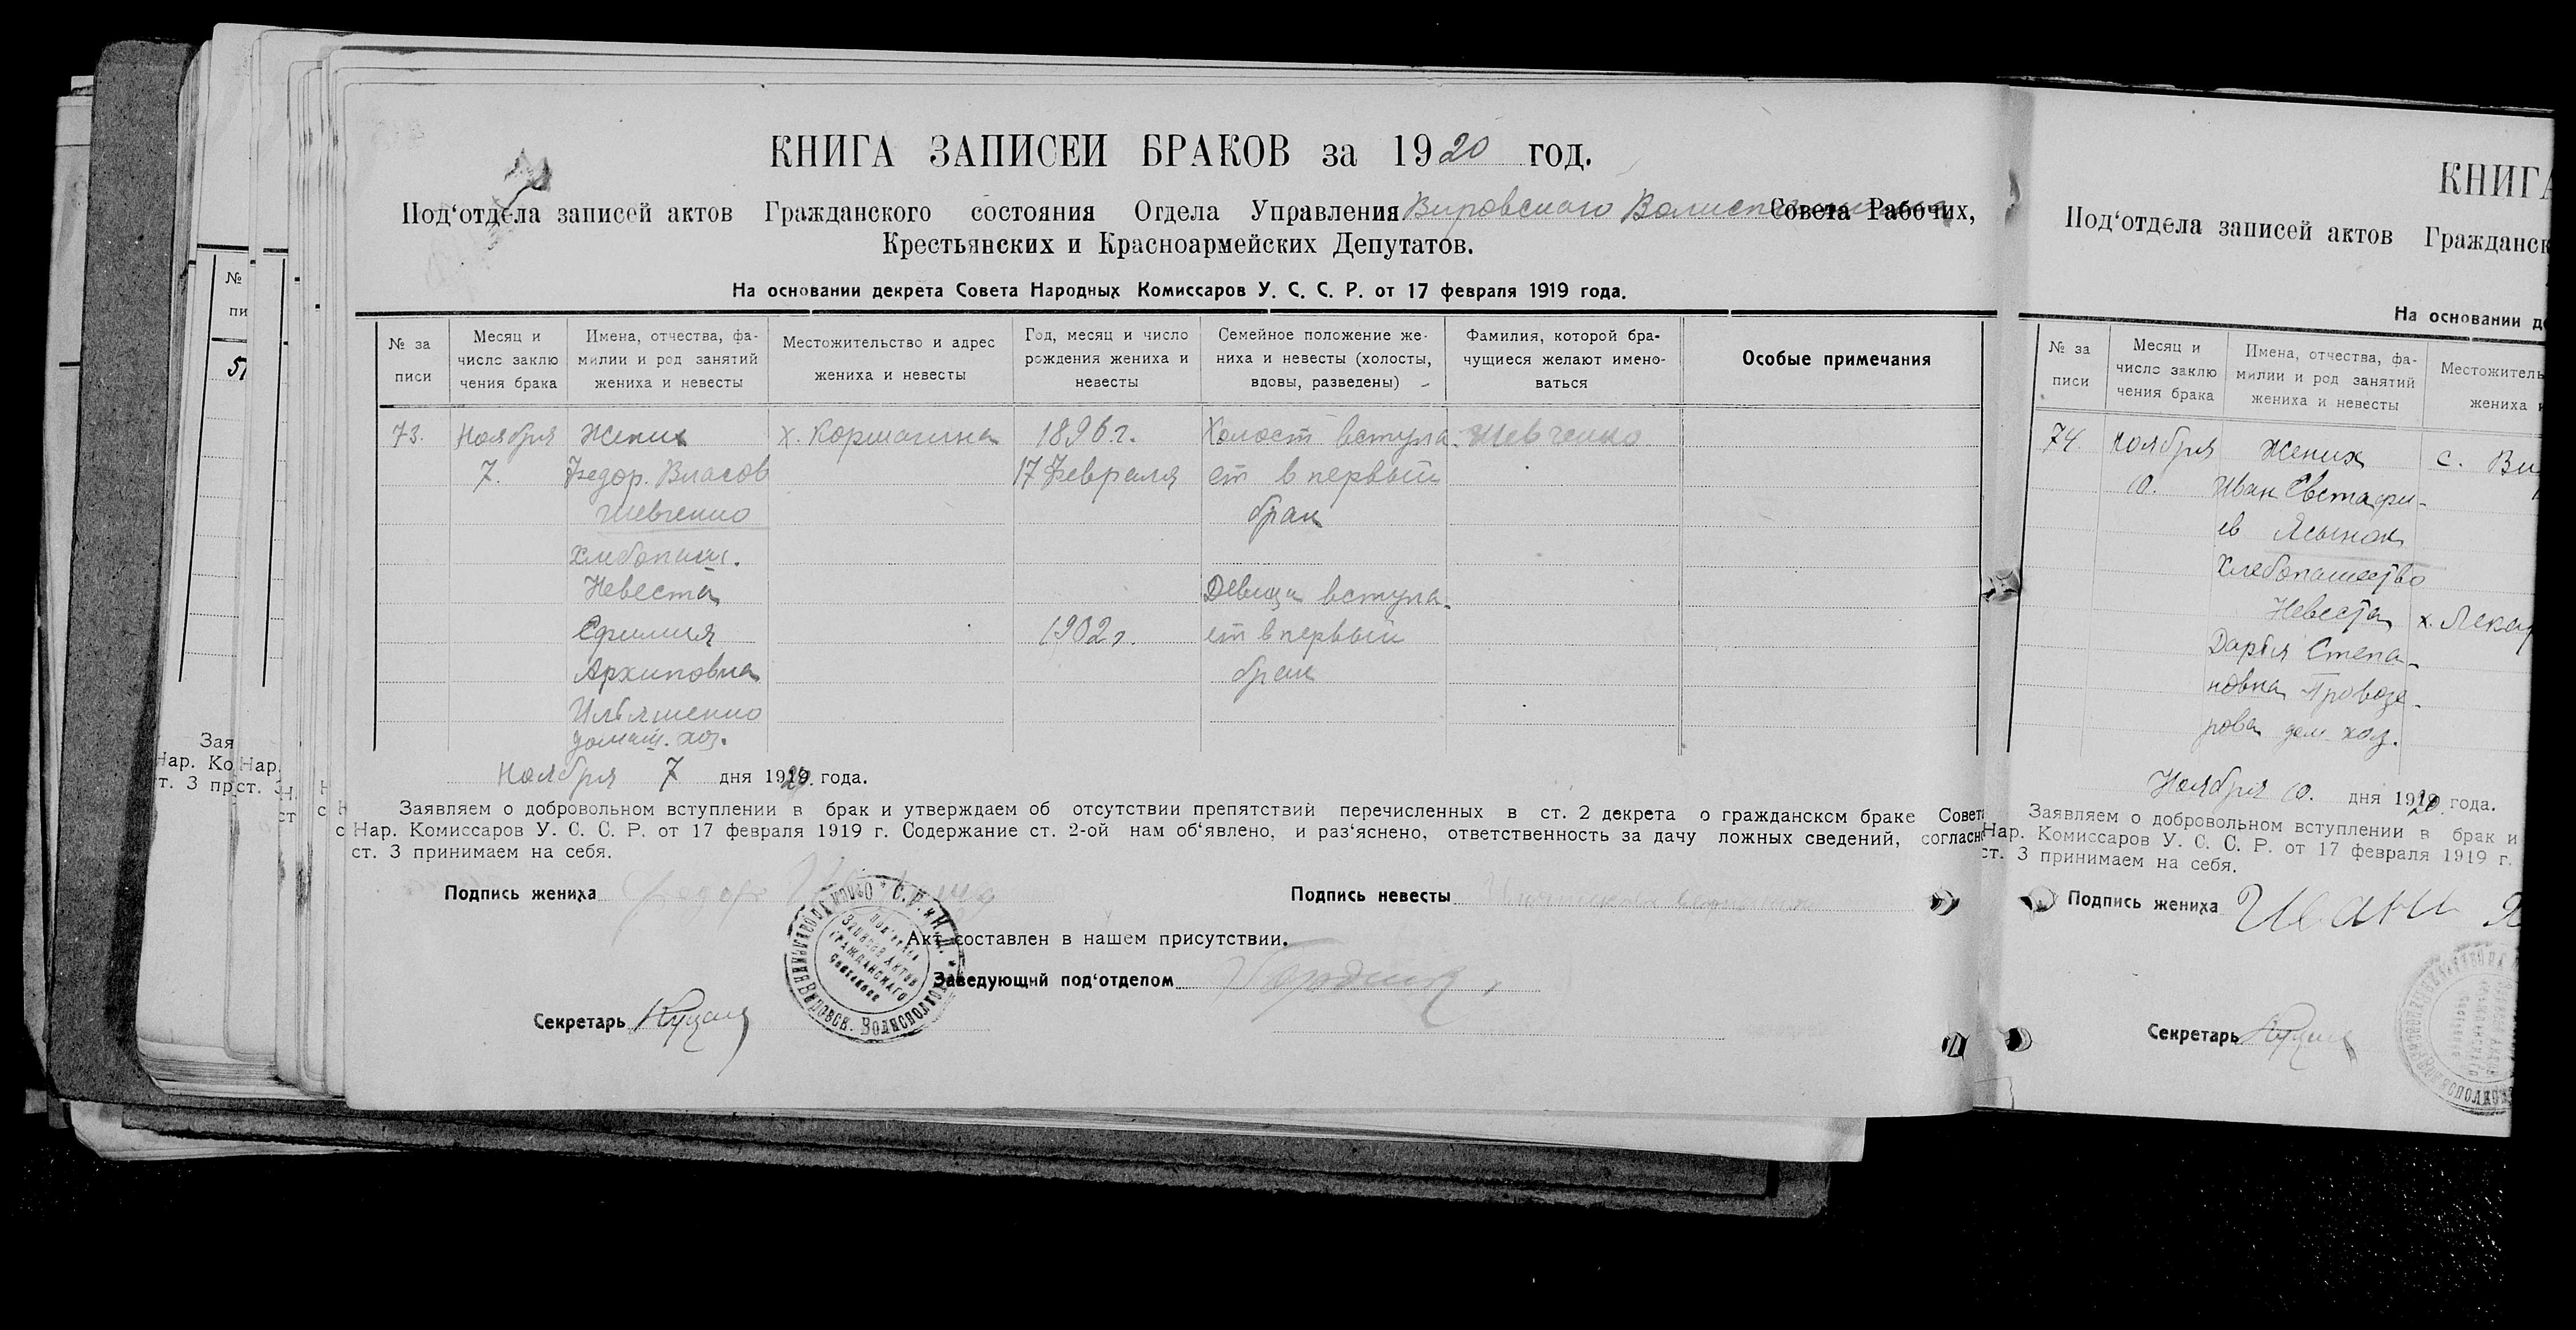 КНИГА ЗАПИСЕЙ БРАКОВ за 1920 год.
Под‘отдела записей актов Гражданского состояния Отдела Управления Вировского Волисполкома Совета Рабочих,
Крестьянских и Красноармейских Депутатов.
На основании декрета Совета Народных Комиссаров У. С. С. Р. от 17 февраля 1919 года.
№ за
писи
Месяц и
число заклю
чения брака
Имена, отчества, фа-
милии и род занятий
жениха и невесты
Местожительство и адрес
жениха и невесты
Год, месяц и число
рождения жениха и
невесты
Семейное положение же-
ниха и невесты (холосты,
вдовы, разведены)
Фамилия, которой бра-
чущиеся желают имено-
ваться
Особые примечания
73. Ноября Жених х. Коршачина 1896 г. Холост вступа- Шевченко
7. Федор. Власов 17 Февраля ет в первый
Шевченко брак
хлебопаш.
Невеста Девица вступа-
Ефимия 1902 г. ет в первый
Архиповна брак
Ильяшенко
домаш. хоз.
Ноября 7 дня 1920 года.
Заявляем о добровольном вступлении в брак и утверждаем об отсутствии препятствий перечисленных в ст. 2 декрета о гражданском браке Совета
Нар. Комиссаров У. С. С. Р. от 17 февраля 1919 г. Содержание ст. 2-ой нам об‘явлено, и раз‘яснено, ответственность за дачу ложных сведений, согласно
ст. 3 принимаем на себя.
Подпись жениха Федор
Подпись невесты
Акт составлен в нашем присутствии.
Заведующий под‘отделом
Секретарь
Вировск. Волисполком
Под‘отдел
Записей Актов
Гражданскаго
Состояния
КНИГА
Под‘отдела записей актов Гражданск
На основании де
№ за
писи
Месяц и
число заклю
чения брака
Имена, отчества, фа-
милии и род занятий
жениха и невесты
Местожитель
жениха и
74. Ноября Жених с. Ви
10. Иван Евстафи-
ев Ясынок
Хлебопашество
Невеста
Дарья Степа-
новна
рова дом. хоз.
Ноября 10. дня 1920 года.
Заявляем о добровольном вступлении в брак и
Нар. Комиссаров У. С. С. Р. от 17 февраля 1919 г.
ст. 3 принимаем на себя.
Подпись жениха Иван Я
Секретарь
№
пи
57
Зая
Нар. Ко
т. 3 пр
Нар.
ст. 3